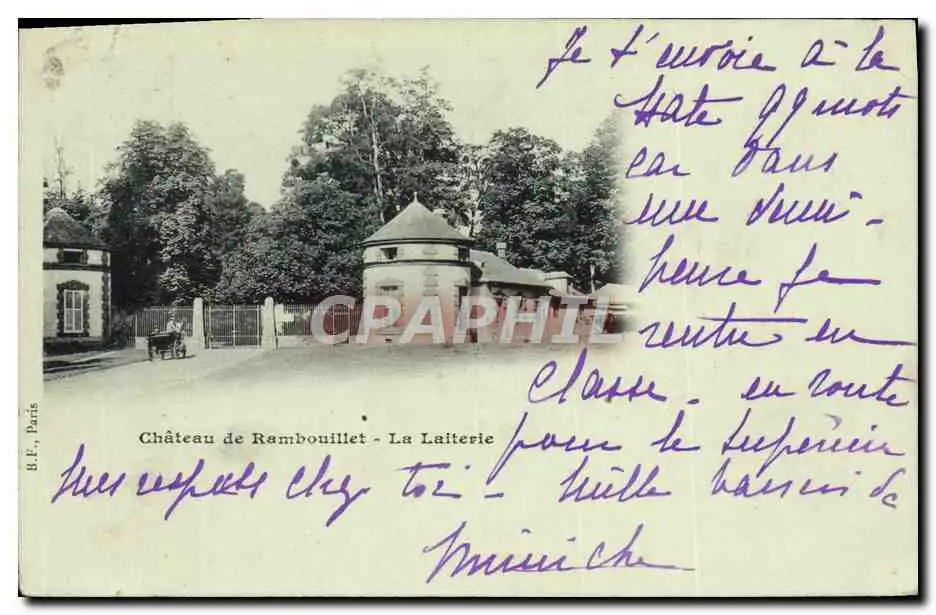 Je t'envoie à la
hate qq mots
car dans
une demi-
heure je
rentre en
Classe - en route
pour le supérieur
Mes respects chez toi - Mille baisers de
Miniche
CPARHIL
Château de Rambouillet - La Laiterie
B.F., Paris